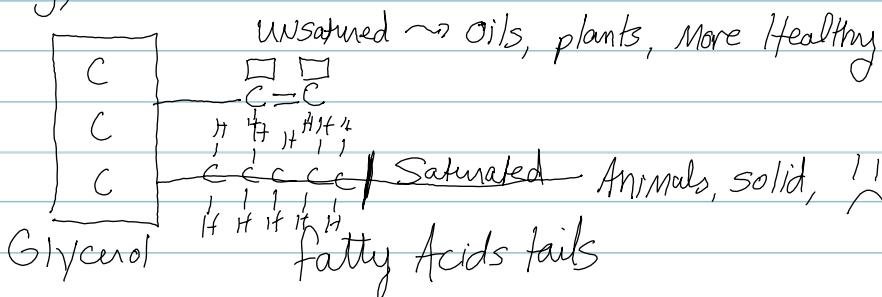 unsatured ~> Oils, plants, More Healthy
C
C = C
C
H H H H H H
C C C C C C Saturated Animals, solid,
H H H H H
Glycerol Fatty Acids tails